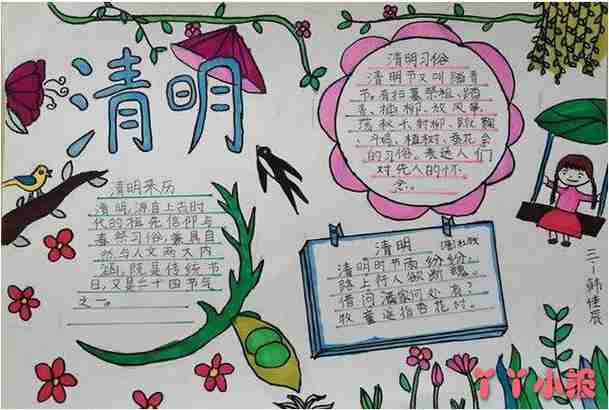 清明
清明习俗
清明节又叫踏青
节,有扫墓祭祖、踏
青、插柳、放风筝、
荡秋千、射柳、蹴鞠
、斗鸡、植树、蚕花会
的习俗。表达人们
对先人的怀
念。
清明来历
清明,源自上古时
代的祖先信仰与
春祭习俗,兼具自
然与人文两大内
涵,既是传统节
日,又是二十四节气
之一。
清明 唐 杜牧
清明时节雨纷纷,
路上行人欲断魂。
借问酒家何处有?
牧童遥指杏花村。
三一韩佳辰
丫丫小报